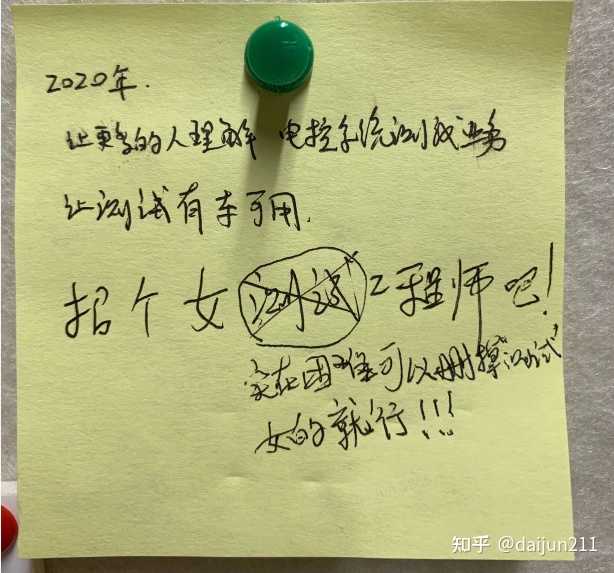 2020年.
让更多的人理解 电控系统测试业务
让测试有车可用.
招个女测试工程师吧!
实在困难可以删掉"测试"
女的就行!!!
知乎 @daijun211